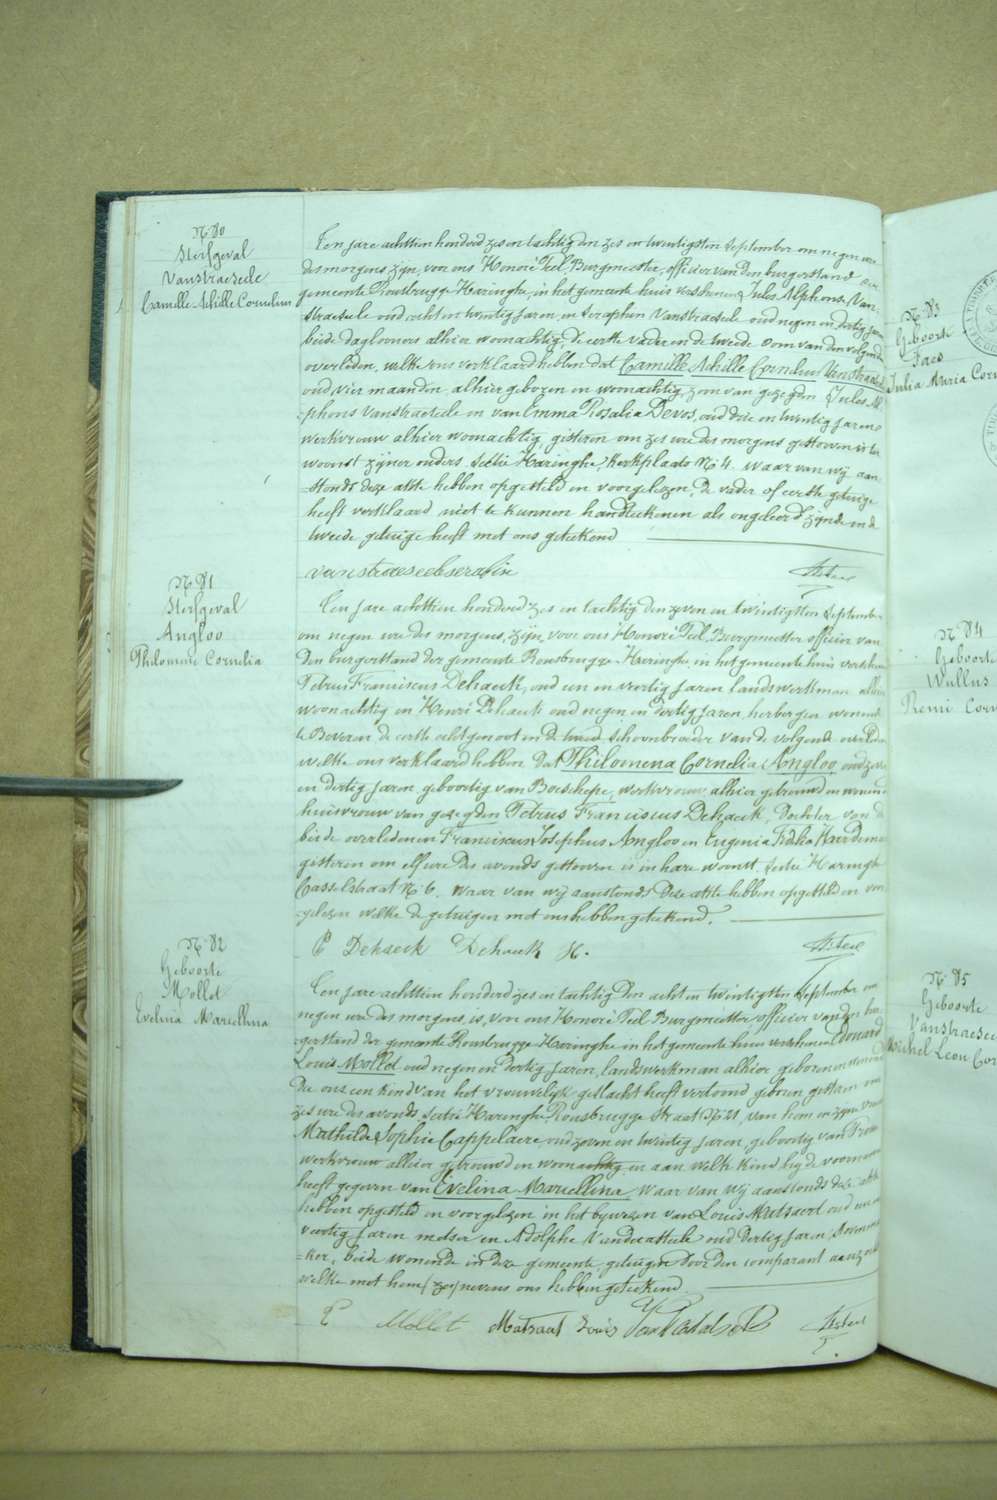 N. 80
Sterfgeval
Vanstraeseele
Camille Achille Cornelius
Ten jare achttien honderd zes en tachtig den zes en twintigsten September om negen ure
des morgens zijn, voor ons Honoré Teel, Burgmeester, officier van den burgerstand der
gemeente Rousbrugge Haringhe, in het gemeente huis verschenen Jules Alphons Van-
straeseele oud acht en twintig jaren, en Seraphin Vanstraeseele oud negen en dertig jaren
beide dagloners alhier woonachtig, de eerste vader en de tweede oom van den volgenden
overleden, welke ons verklaard hebben dat Camille Achille Cornelius Vanstraeseele
oud vier maanden, alhier geboren en woonachtig, zoon van gezegden Jules Al-
-phons Vanstraeseele en van Emma Rosalia Devos, oud drie en twintig jaren
werkvrouw alhier woonachtig, gisteren om zes ure des morgens gestorven is ter
woonst zijner ouders, sectie Haringhe, Kerkplaats No 4. Waar van wij aan
-stonds deze akte hebben opgesteld en voorgelezen, de vader of eerste getuige
heeft verklaard niet te kunnen handteekenen als ongeleerd zijnde en de
tweede getuige heeft met ons geteekend
vanstraeseele serafin H. Teel
N. 81
Sterfgeval
Angloo
Philomene Cornelia
Ten jare achttien honderd zes en tachtig den zeven en twintigsten September
om negen ure des morgens, zijn, voor ons Honoré Teel, Burgmeester officier van
den burgerstand der gemeente Rousbrugge Haringhe, in het gemeente huis verschenen
Petrus Franciscus Dehaeck, oud een en veertig jaren landswerkman alhier
woonachtig en Henri Dehaeck oud negen en dertig jaren, herbergier wonende
te Beveren de eerste echtgenoot en de tweede schoonbroeder van de volgende overleden
welke ons verklaard hebben dat Philomena Cornelia Angloo, oud zeven
en dertig jaren geboortig van Boeschepe, werkvrouw alhier getrouwd en wonende
huisvrouw van gezegden Petrus Franciscus Dehaeck, dochter van de
beide overledenen Franciscus Josephus Angloo en Eugenia Fidelia
gisteren om elf ure des avonds gestorven is in hare woonst sectie Haringhe
Casselstraat No 6. Waar van wij aanstonds deze akte hebben opgesteld en voor
-gelezen welke de getuigen met ons hebben geteekend.
P Dehaeck Dehaeck H. H. Teel
N. 82
Geboorte
Mollet
Evelina Marcellina
Ten jare achttien honderd zes en tachtig den acht en twintigsten September om
negen ure des morgens, is, voor ons Honoré Teel Burgmeester officier van den bur
-gerstand der gemeente Rousbrugge Haringhe in het gemeente huis verschenen Edouard
Louis Mollet oud negen en dertig jaren, landswerkman alhier geboren en wonende
Die ons een kind van het vrouwelijk geslacht heeft vertoond geboren gisteren om
zes ure des avonds sectie Haringhe, Rousbrugge straat No 21, van hem en zijne vrouw
Mathilde Sophie Cappelaere, oud zeven en twintig jaren, geboortig van
werkvrouw alhier getrouwd en woonachtig en aan welk kind hij de voornamen
heeft gegeven van Evelina Marcellina, Waar van wij aanstonds deze akte
hebben opgesteld en voorgelezen in het bijwezen van Louis Matsaert oud een en
veertig jaren metser en Adolphe Vandecasteele oud dertig jaren,
-ker, beide wonende in deze gemeente, getuigen door den comparant aanzocht
welke met hem nevens ons hebben geteekend
E Mollet Matsaart Louis H. Teel
N. 83
Geboorte
Faes
Julia Maria Corn
N. 84
Geboorte
Wullus
Remi Corn
N. 85
Geboorte
Vanstraesee
Michel Leon Cor